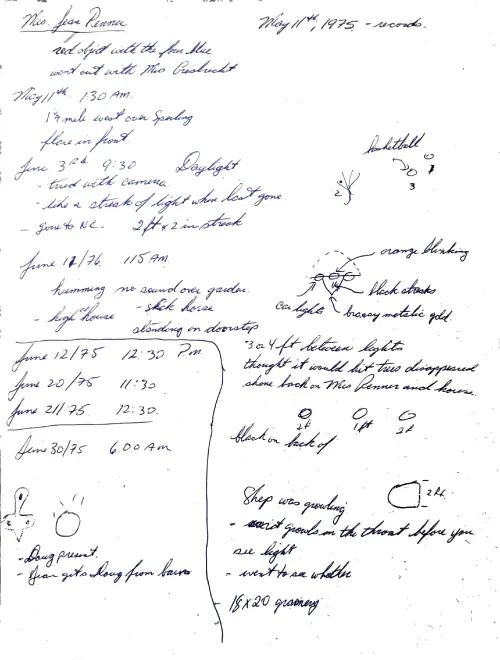 Mrs. Jean Penner
May 11th, 1975 - records.
red object with the four blue
went out with Mrs Giesbrecht
May 11th 1:30 AM.
mile west over Sperling
flare in front
June 3rd 9:30 Daylight
- tried with camera
- like a streak of light when last gone
- gone to NE. 2 ft x 2 in streak
basketball
1
2
3
June 12/76 115 AM.
humming no sound over garden
- high of house - stick horse
standing on doorstep
orange blinking
black streaks
car lights brassy metalic gold.
June 12/75 12:30 Pm
June 20/75 11:30
June 21/75 12:30.
June 30/75 6.00 Am
3 or 4 ft between lights
thought it would hit trees disappeared
shone back on Mrs Penner and house.
2ft 1ft 2ft
black on back of
- Doug present.
- Jean gets Doug from barn
Shep was growling
2 ft.
- growls in the throat before you
see light
- went to see whether
- 18 x 20 grainery